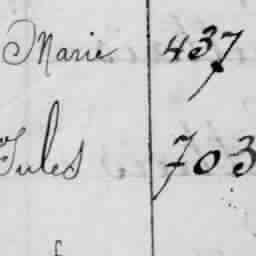 Marie 437
Jules 703